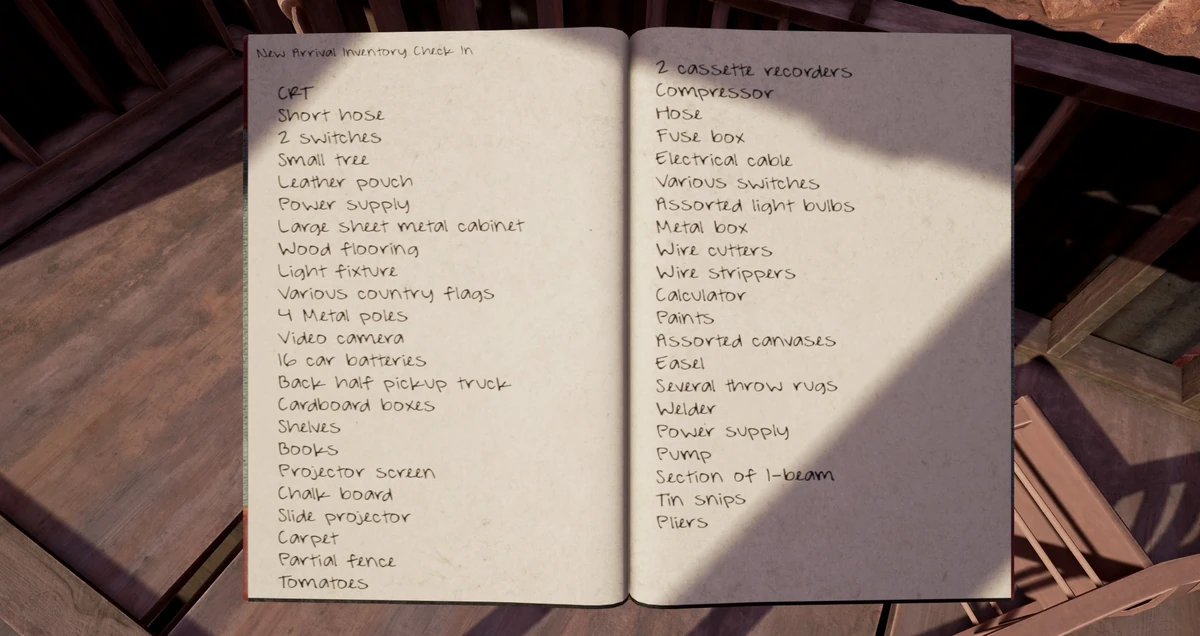 New Arrival Inventory Check In
CRT
Short hose
2 switches
Small tree
Leather pouch
Power supply
Large sheet metal cabinet
Wood flooring
Light fixture
Various country flags
4 Metal poles
Video camera
16 car batteries
Back half pickup truck
Cardboard boxes
Shelves
Books
Projector screen
Chalk board
Slide projector
Carpet
Partial fence
Tomatoes
2 cassette recorders
Compressor
Hose
Fuse box
Electrical cable
Various switches
Assorted light bulbs
Metal box
Wire cutters
Wire strippers
Calculator
Paints
Assorted canvases
Easel
Several throw rugs
Welder
Power supply
Pump
Section of I-beam
Tin snips
Pliers